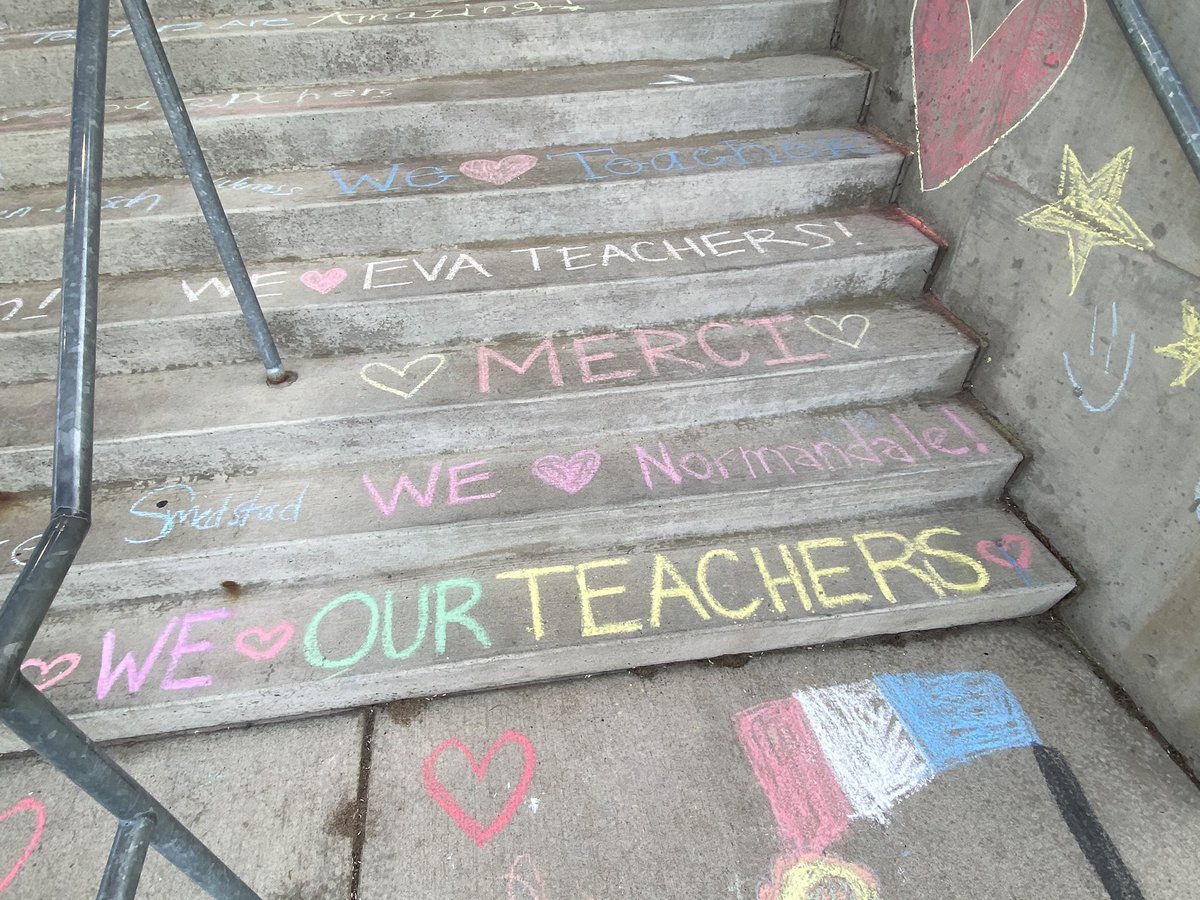 Are Amazing!
WE Teachers
WE EVA TEACHERS!
MERCI
Smidstad WE Normandale!
WE OUR TEACHERS